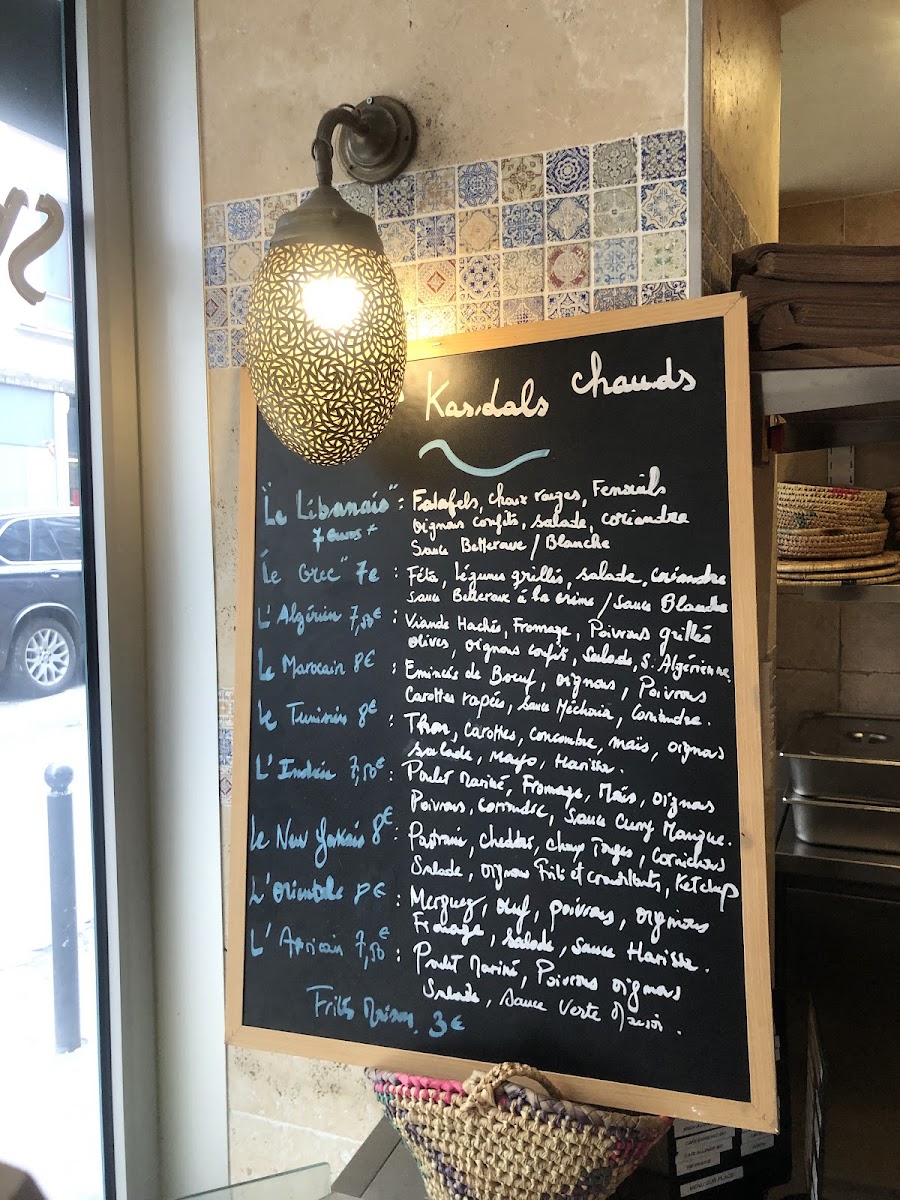 Kasdals chauds
"Le Libanais" : Falafels, choux rouges, Fenouils
7 euros oignons confits, salade, coriandre
Sauce Betterave / Blanche
Le Grec" 7e : Féta, Légumes grillés, salade, coriandre
Sauce Betterave à la crème / Sauce Blanche
L'Algérien 7,50€ : Viande Hachée, Fromage, Poivrons grillés
olives, oignons confits, Salade, S. Algérienne
Le Marocain 8€ : Emincés de Boeuf, oignons, Poivrons
Carottes rapées, Sauce Méchouia, Coriandre.
Le Tunisien 8€ : Thon, Carottes, concombre, maïs, oignons
Salade, Mayo, Harissa.
L'Indien 7,50€ : Poulet Mariné, Fromage, Maïs, oignons
Poivrons, Coriandre, Sauce Curry Mangue.
Le New Yorkais 8€ : Pastrami, cheddar, choux rouges, Cornichons
Salade, oignons Frits et croustillants, Ketchup
L'orientale 8€ : Merguez, œuf, poivrons, oignons
Fromage, Salade, Sauce Harissa.
L'Africain 7,50€ : Poulet Mariné, Poivrons oignons
Salade, Sauce Verte Maison.
Frites Maison, 3€
MENU SUR PLACE